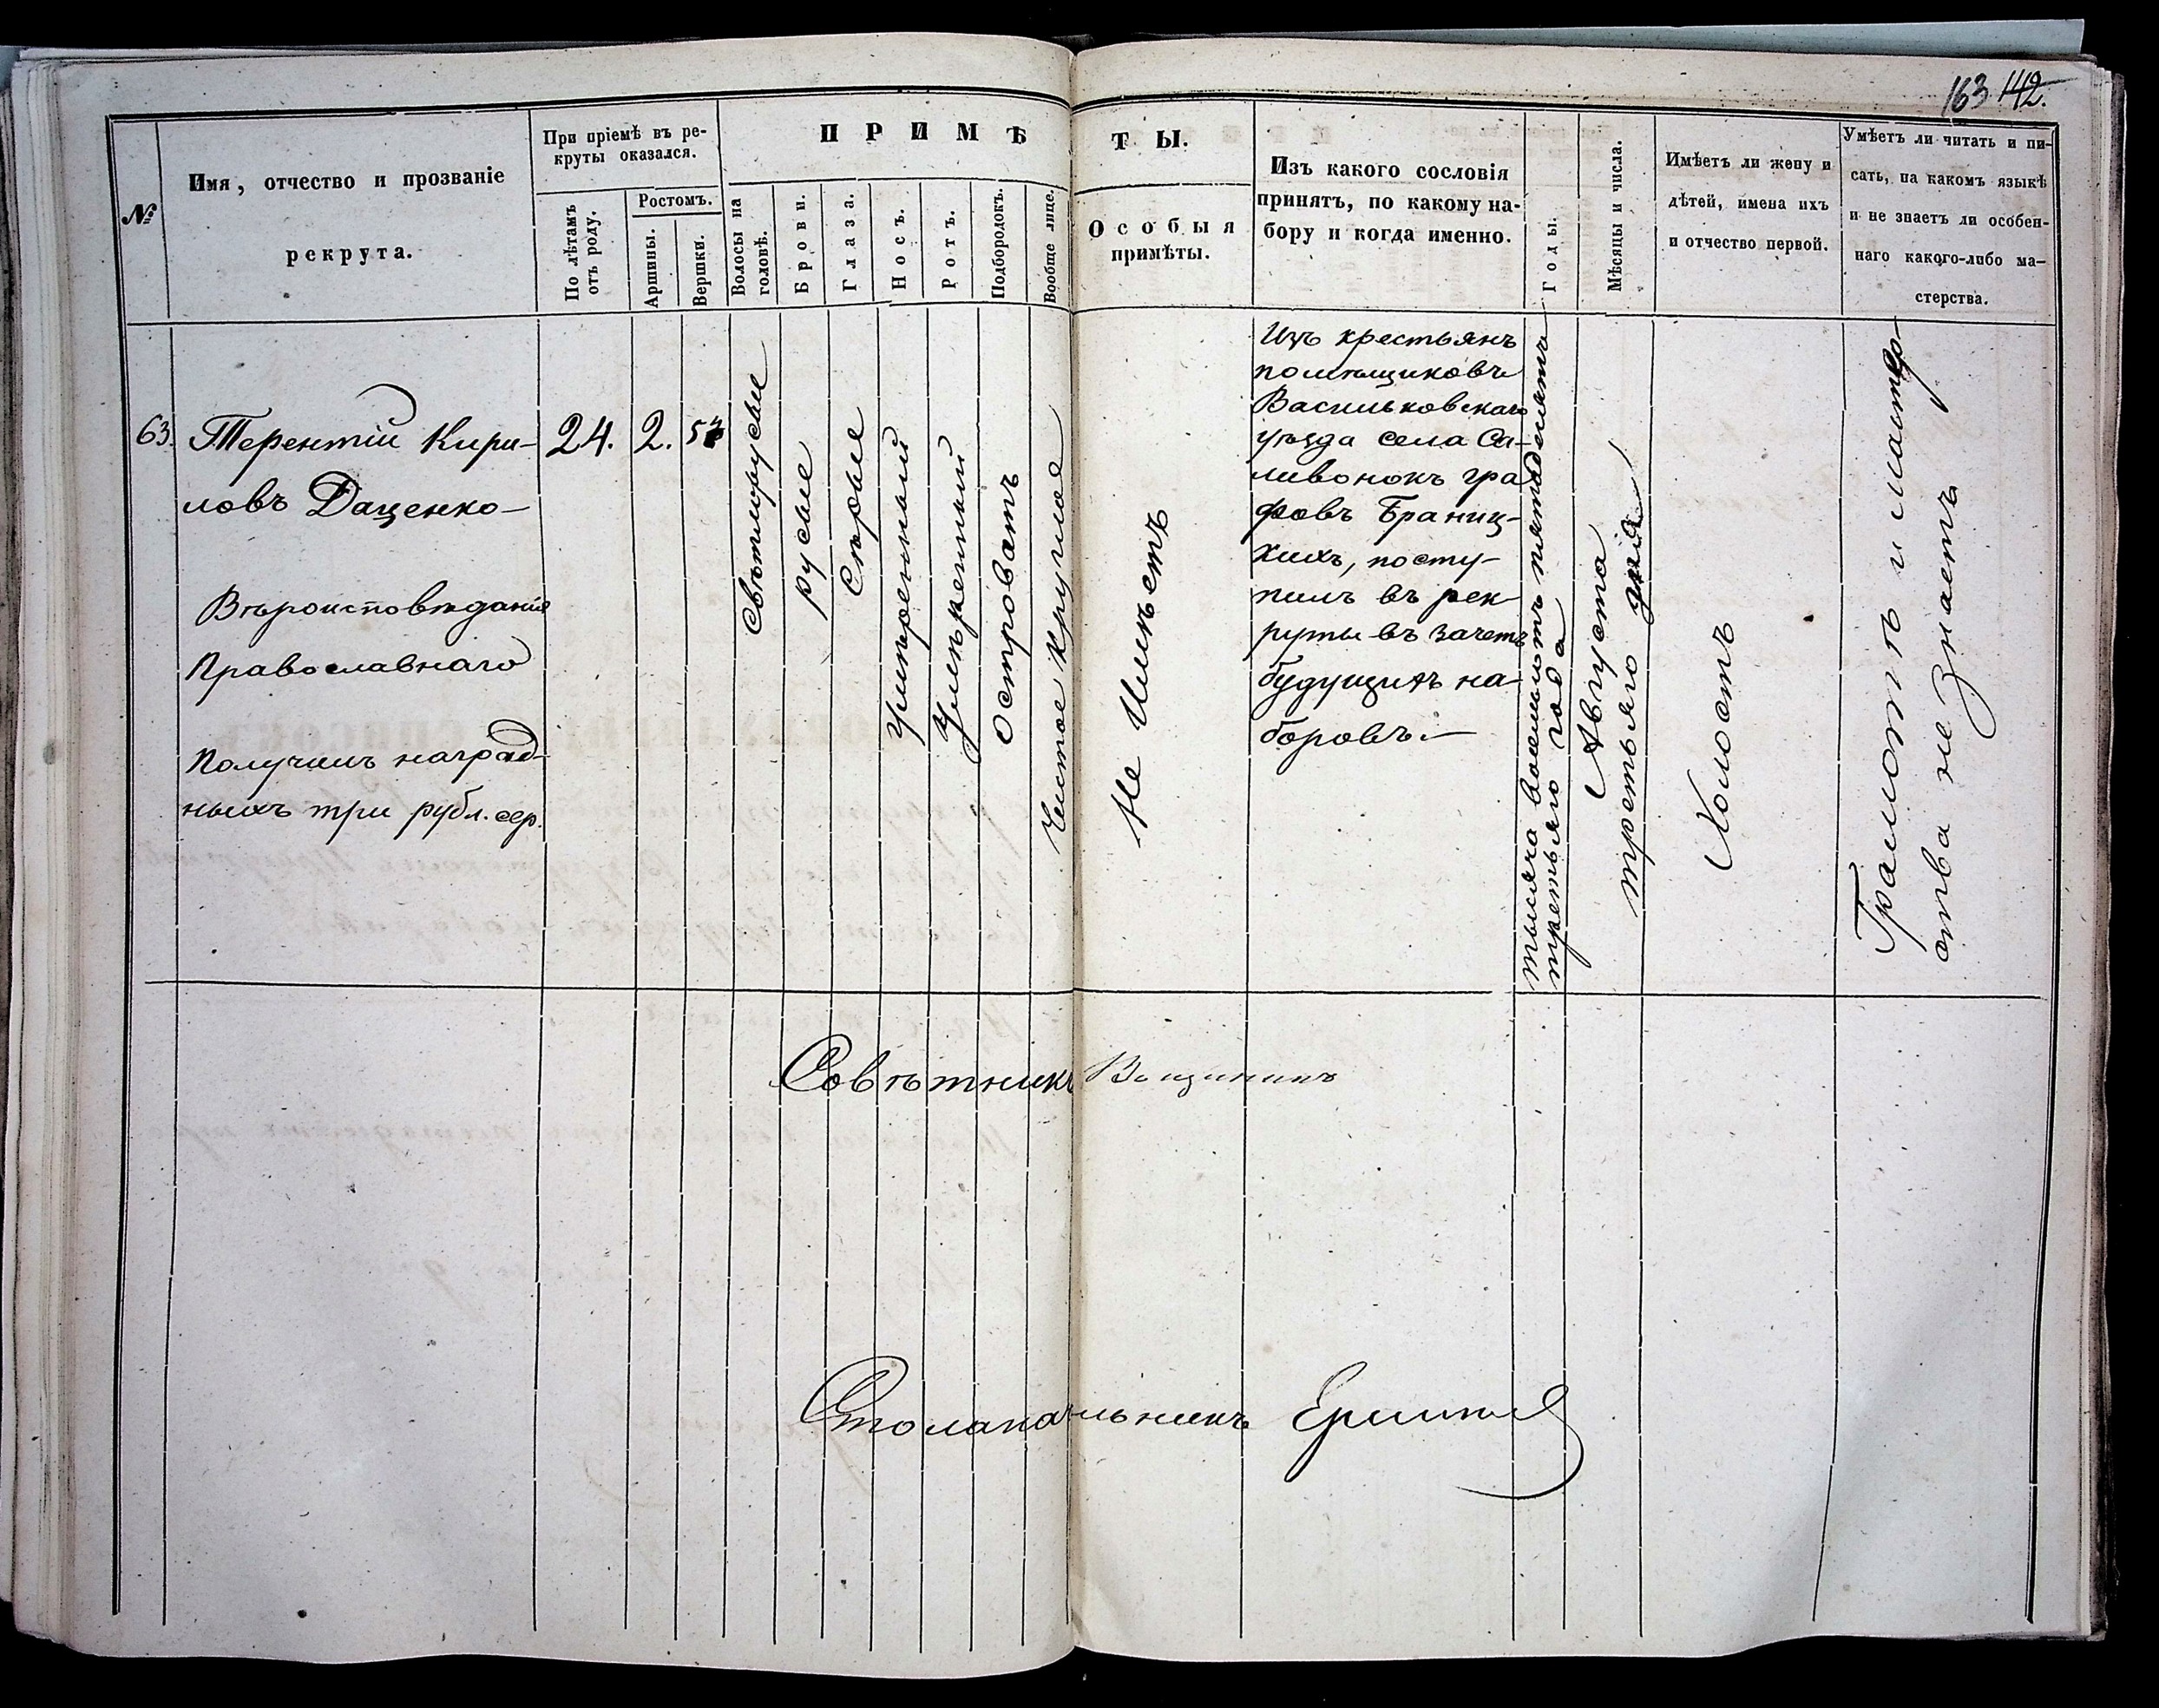 163 142.
№
Имя, отчество и прозваніе
рекрута.
При пріемѣ въ ре-
круты оказался.
По лѣтамъ
отъ роду.
Ростомъ.
Аршины.
Вершки.
ПРИМѢ
ТЫ.
Волосы на
головѣ.
Брови.
Глаза.
Носъ.
Ротъ.
Подбородокъ.
Вообще лице.
Особыя
примѣты.
Изъ какого сословія
принятъ, по какому на-
бору и когда именно.
Годы.
Мѣсяцы и числа.
Имѣетъ ли жену и
дѣтей, имена ихъ
и отчество первой.
Умѣетъ ли читать и пи-
сать, на какомъ языкѣ
и не знаетъ ли особен-
наго какого-либо ма-
стерства.
63.
Терентій Кири-
ловъ Даценко
Вѣроисповѣданія
Православнаго
Получилъ наград-
ныхъ три рубл. сер.
24.
2.
Свѣтлорусые
русые
Сѣрые
Умѣренный
Умѣренный
Островатъ
Чистое круглое
Не Имѣетъ
Изъ крестьянъ
помѣщиковъ
Васильковскаго
уѣзда села Са-
ливонокъ гра
фовъ Браниц-
кихъ, посту-
пилъ въ рек-
руты въ зачетъ
будущихъ на-
боровъ.
тысяча восемьсотъ пятьдесятъ
третьяго года
Августа
третьяго дня
Холостъ
Грамотѣ и мастер-
ства не знаетъ
Совѣтникъ
Столоначальникъ